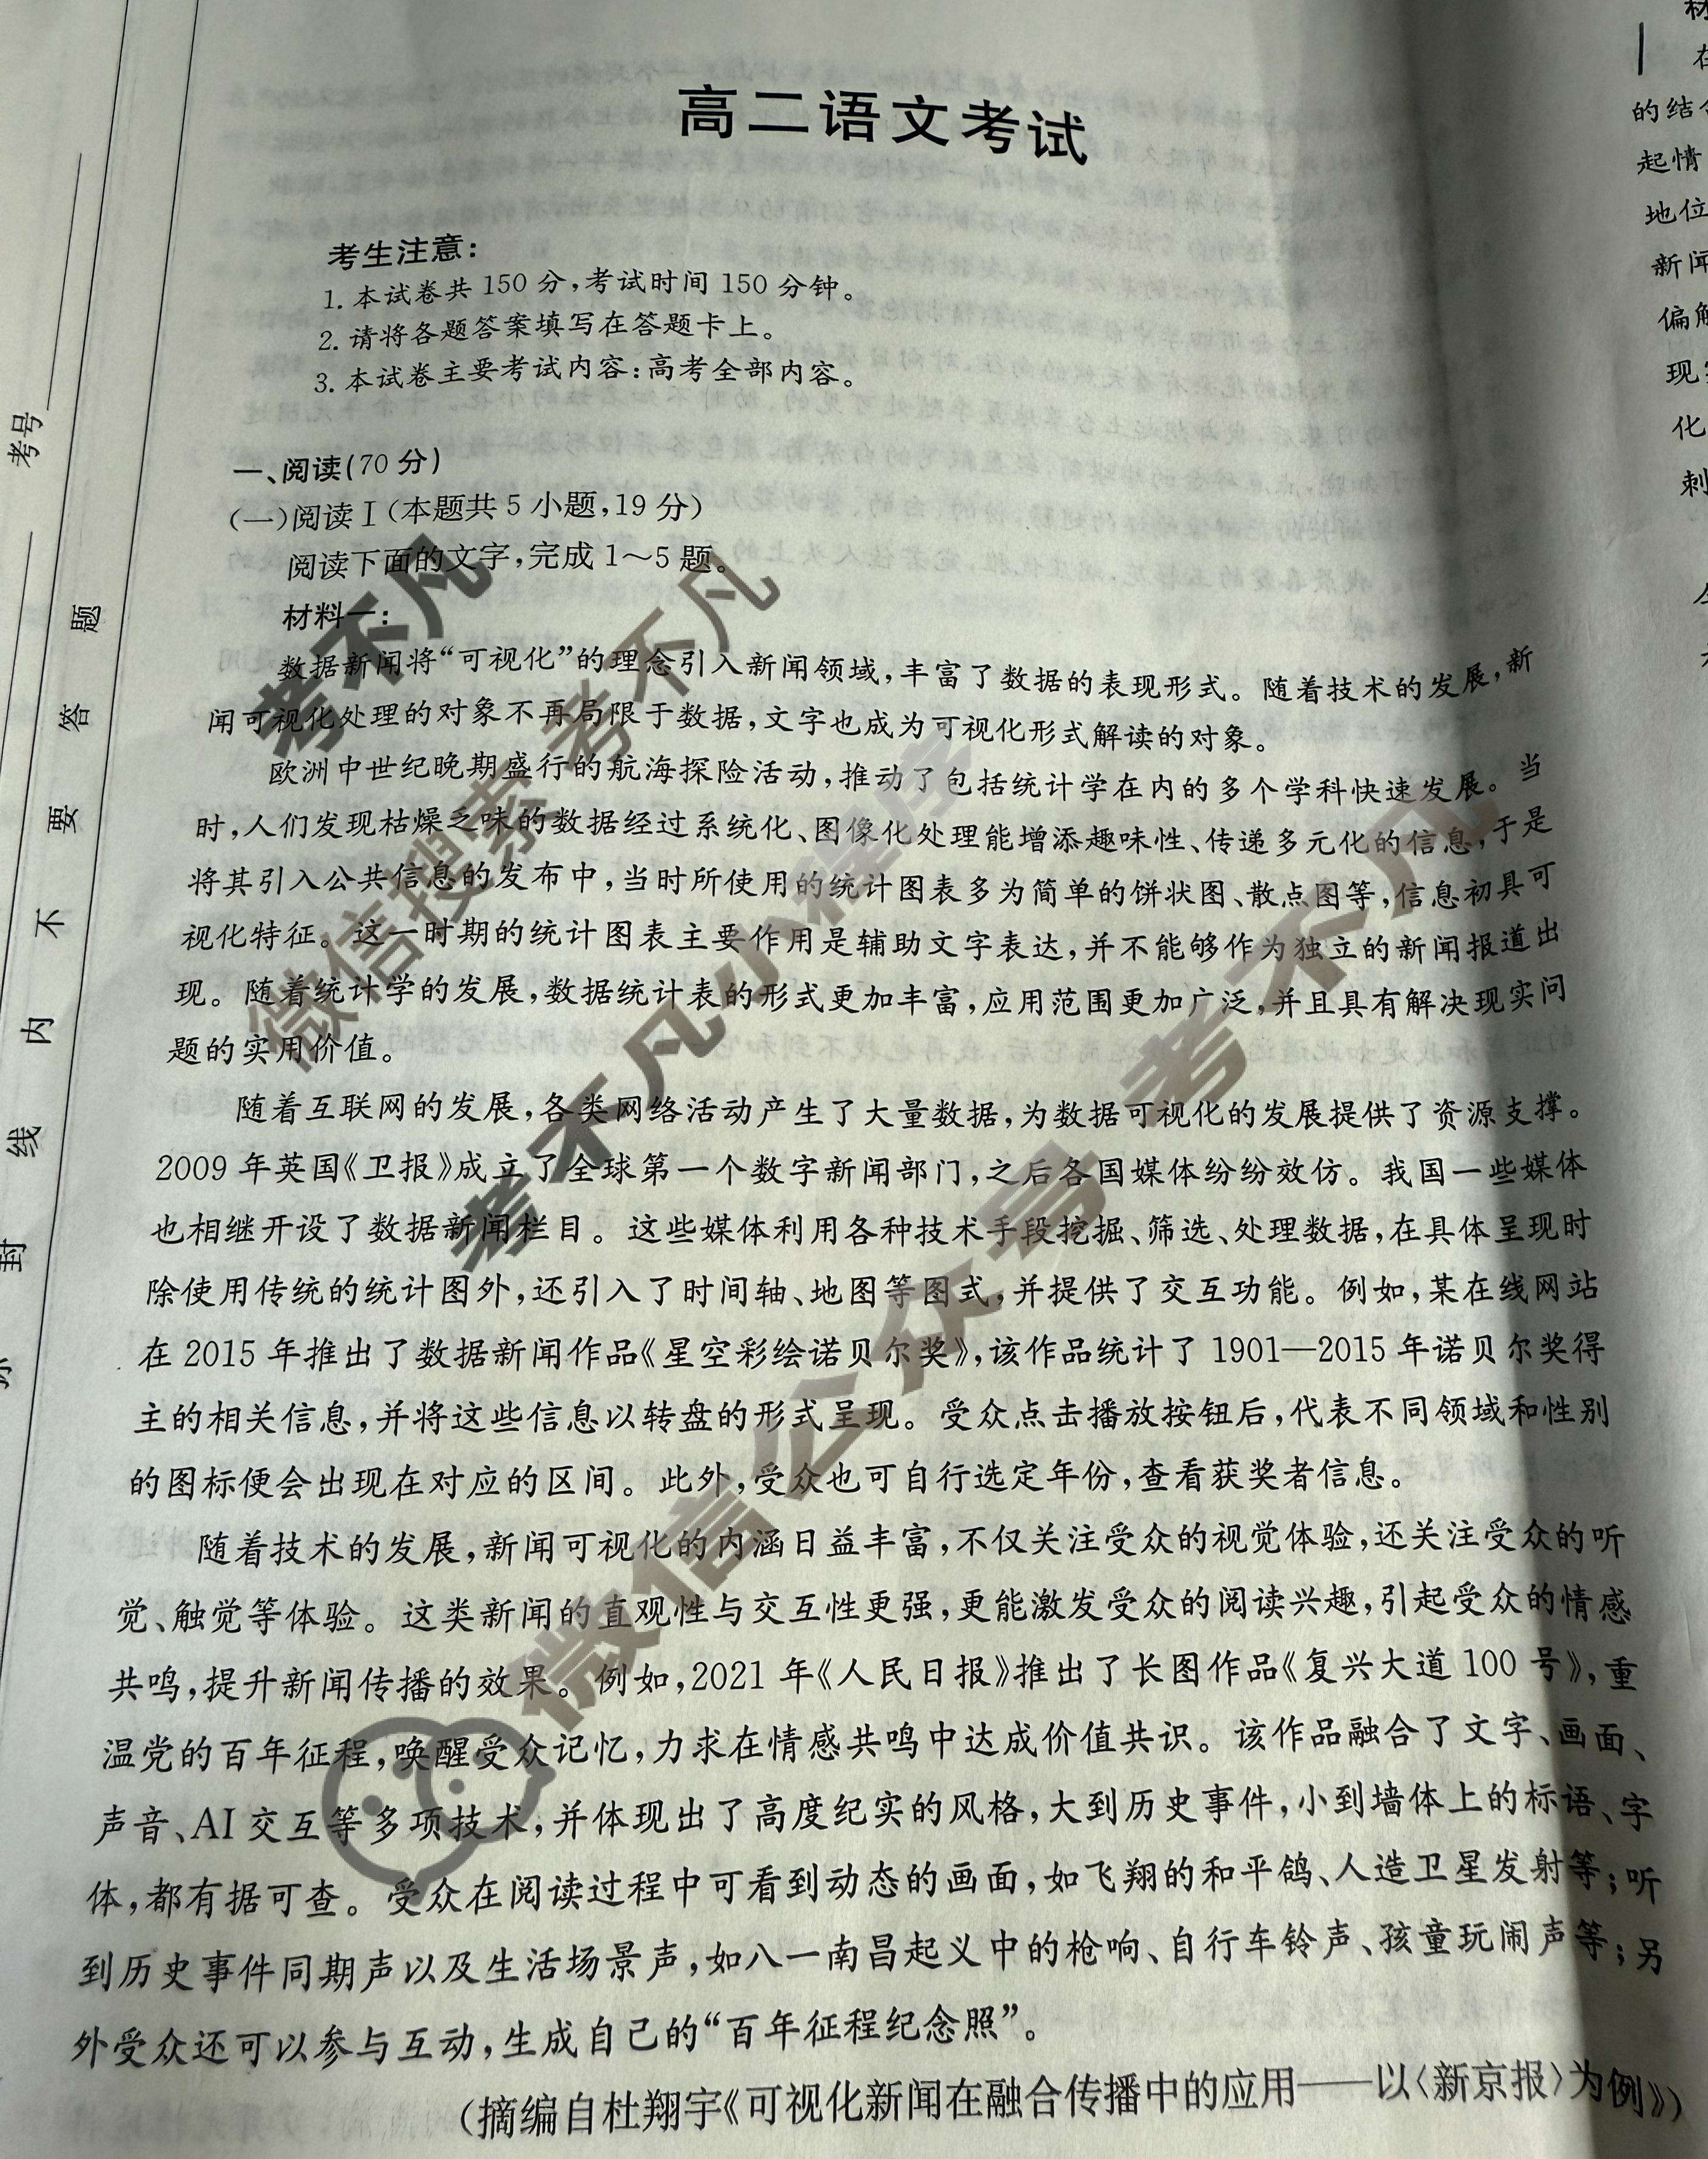 高二语文考试
考生注意：
1. 本试卷共 150 分，考试时间 150 分钟。
2. 请将各题答案填写在答题卡上。
3. 本试卷主要考试内容：高考全部内容。
一、阅读(70 分)
(一)阅读Ⅰ(本题共 5 小题，19 分)
阅读下面的文字，完成 1～5 题。
材料一：
数据新闻将“可视化”的理念引入新闻领域，丰富了数据的表现形式。随着技术的发展，新
闻可视化处理的对象不再局限于数据，文字也成为可视化形式解读的对象。
欧洲中世纪晚期盛行的航海探险活动，推动了包括统计学在内的多个学科快速发展。当
时，人们发现枯燥乏味的数据经过系统化、图像化处理能增添趣味性、传递多元化的信息，于是
将其引入公共信息的发布中，当时所使用的统计图表多为简单的饼状图、散点图等，信息初具可
视化特征。这一时期的统计图表主要作用是辅助文字表达，并不能够作为独立的新闻报道出
现。随着统计学的发展，数据统计表的形式更加丰富，应用范围更加广泛，并且具有解决现实问
题的实用价值。
随着互联网的发展，各类网络活动产生了大量数据，为数据可视化的发展提供了资源支撑。
2009 年英国《卫报》成立了全球第一个数字新闻部门，之后各国媒体纷纷效仿。我国一些媒体
也相继开设了数据新闻栏目。这些媒体利用各种技术手段挖掘、筛选、处理数据，在具体呈现时
除使用传统的统计图外，还引入了时间轴、地图等图式，并提供了交互功能。例如，某在线网站
在 2015 年推出了数据新闻作品《星空彩绘诺贝尔奖》，该作品统计了 1901—2015 年诺贝尔奖得
主的相关信息，并将这些信息以转盘的形式呈现。受众点击播放按钮后，代表不同领域和性别
的图标便会出现在对应的区间。此外，受众也可自行选定年份，查看获奖者信息。
随着技术的发展，新闻可视化的内涵日益丰富，不仅关注受众的视觉体验，还关注受众的听
觉、触觉等体验。这类新闻的直观性与交互性更强，更能激发受众的阅读兴趣，引起受众的情感
共鸣，提升新闻传播的效果。例如，2021 年《人民日报》推出了长图作品《复兴大道 100 号》，重
温党的百年征程，唤醒受众记忆，力求在情感共鸣中达成价值共识。该作品融合了文字、画面、
声音、AI 交互等多项技术，并体现出了高度纪实的风格，大到历史事件，小到墙体上的标语、字
体，都有据可查。受众在阅读过程中可看到动态的画面，如飞翔的和平鸽、人造卫星发射等；听
到历史事件同期声以及生活场景声，如八一南昌起义中的枪响、自行车铃声、孩童玩闹声等；另
外受众还可以参与互动，生成自己的“百年征程纪念照”。
(摘编自杜翔宇《可视化新闻在融合传播中的应用——以〈新京报〉为例》)
考号
题
答
要
不
内
线
封
的结
起情
地位
新闻
偏
现
化
刺
考不凡
微信搜索 考不凡
考不凡小程序
微信公众号 考不凡